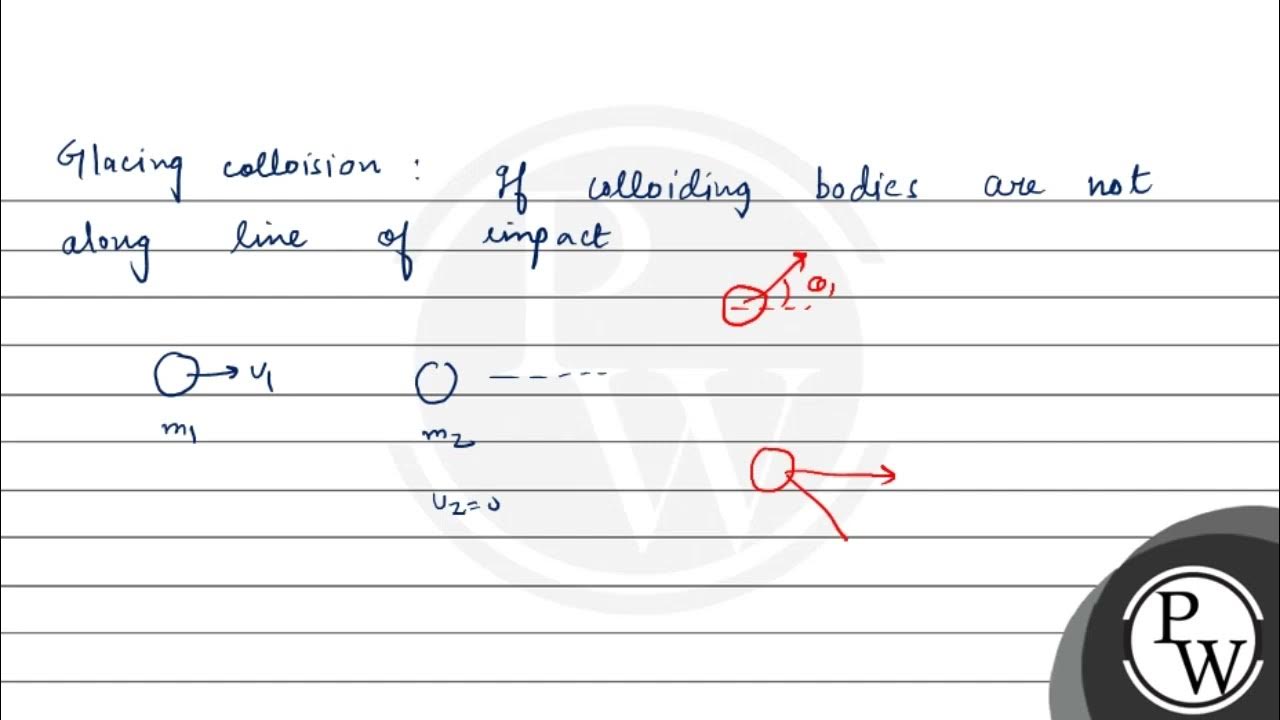 Glacing colloision : If colloiding bodies are not
along line of impact
θ1
u1
m1
m2
u2=0
P
W
PW